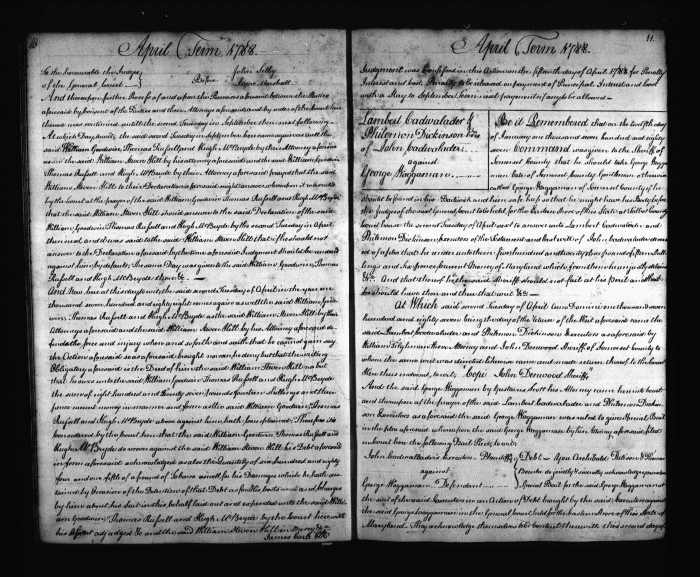 10
April Term 1788.
To the Honourable the Judges
of the General Court
Before
John Selby
Marshall
And thereupon further Process of and upon the Premises aforesaid between the Parties
aforesaid by consent of the Parties and their Attorneys aforesaid and by order of the Court here
thereon was continued until the second Tuesday in September then next following
At which Day, to wit, the said second Tuesday in September here came again as well the
said William Goodwin, Thomas Russell and Hugh McBryde by their Attorney aforesaid
as the said William Steven Hill by his Attorney aforesaid and the said William Goodwin
Thomas Russell and Hugh McBryde by their Attorney aforesaid prayed that the said
William Steven Hill to their Declaration aforesaid might answer whereupon it was ruled
by the Court at the prayer of the said William Goodwin Thomas Russell and Hugh McBryde
that the said William Steven Hill should answer to the said Declaration of the said
William Goodwin, Thomas Russell and Hugh McBryde by the second Tuesday in April
then next, and it was said to the said William Steven Hill that if he should not
answer to the Declaration aforesaid by the time aforesaid Judgment should be rendered
against him by default. The same Day was given to the said William Goodwin, Thomas
Russell and Hugh McBryde then there &c.
And Now here at this day, to wit, the said second Tuesday of April in the year one
thousand seven hundred and eighty eight comes again as well the said William Goodwin,
Thomas Russell and Hugh McBryde as the said William Steven Hill by their
Attorneys aforesaid and the said William Steven Hill by his Attorney aforesaid de-
fends the force and injury when and so forth and saith that he cannot gain say
the Action aforesaid so as aforesaid brought nor can he deny but that the writing
Obligatory aforesaid is the Deed of him the said William Steven Hill nor but
that he owes unto the said William Goodwin Thomas Russell and Hugh McBryde
the sum of eight hundred and twenty seven pounds fourteen shillings and three
pence current money in manner and form as the said William Goodwin, Thomas
Russell and Hugh McBryde above against him hath complained; Therefore it is
considered by the Court here that the said William Goodwin Thomas Russell and
Hugh McBryde do recover against the said William Steven Hill his Debt aforesaid
in form aforesaid acknowledged as also the Quantity of six hundred and eighty
four and one fifth of a pound of tobacco as well for his Damages which he hath sus-
tained by Occasion of the Detention of that Debt as for his Costs and and Charges
by him about his Suit in this behalf laid out and expended unto the said Willi-
am Goodwin Thomas Russell and Hugh McBryde by the Court here with
his assent adjudged &c and the said William Steven Hill in Mercy &c
James Earle Clk
11.
April Term 1788.
Judgment was Confessed in this Action on the fifteenth day of April 1788 for Penalty
Interest and Cost, Penalty to be released on payment of Principal Interest and Cost
with a Stay to September Term next payments if any to be allowed —
Lambert Cadwalader &
Philemon Dickinson Exrs
of John Cadwalader
against
George Waggaman
Be it Remembered that on the twelfth day
of January one thousand seven hundred and eighty
seven Command was given to the Sheriff of
Somerset County that he should take George Wagga-
man late of Somerset County Gentleman otherwise
called George Waggaman of Somerset County if he
should be found in his Bailiwick and him safe keep so that he might have his Body before
the Judges of the next General Court to be held for the Eastern Shore of this State at Talbot County
Court house the second Tuesday of April next to answer unto Lambert Cadwalader and
Philemon Dickinson Executors of the Testament and last will of John Cadwalader deceas-
ed of a plea that he render unto them five hundred and pounds fifteen shil-
lings and six pence current Money of Maryland which from them he unjustly detains
&c. And that the said Sheriff should not fail at his Peril and that
he should have then and there that writ &c —
At Which said second Tuesday of April Anno Domini one thousand seven
hundred and eighty seven being the day of the return of the Writ aforesaid came the
said Lambert Cadwalader and Philemon Dickinson Executors as aforesaid by
William Tilghman their Attorney and John Denwood Sheriff of Somerset County to
whom the same writ was directed likewise came and made return thereof to the Court
Here thus endorsed, to wit; "Cepi John Denwood Sheriff"
And the said George Waggaman by Gustavus Scott his Attorney came into Court
and thereupon at the prayer of the said Lambert Cadwalader and Philemon Dickin-
son Executors as aforesaid the said George Waggaman was ruled to give Special Bail
in the plea aforesaid whereupon the said George Waggaman by his Attorney aforesaid filed
in Court here the following Bail Piece, to wit;
John Cadwalader's Executors. Plaintiffs
against
George Waggaman Defendant
Debt — You Archibald Pattison & Thomas
Bourke do jointly & severally acknowledge yourselves
Special Bail for the said George Waggaman not
the sum of thousand in an Action of Debt brought by the said Executors against
the said George Waggaman in the General Court held for the Eastern Shore of this State of
Maryland. They acknowledge themselves to be content therewith this second day of